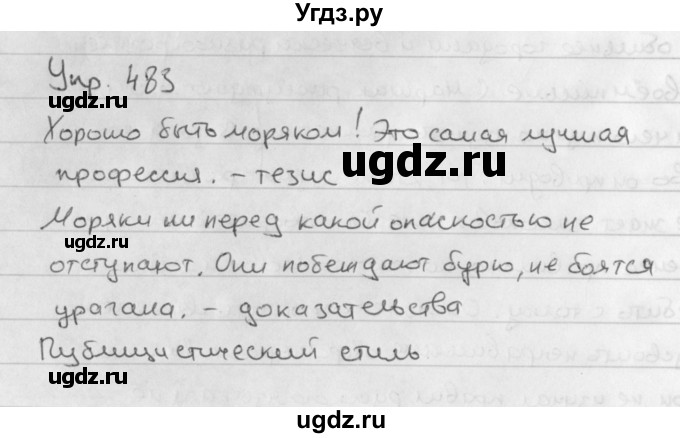 Угдз.ру
Упр. 483
ugdz.ru
ugdz.ru
Хорошо быть моряком! Это самая лучшая
ugdz.ru
профессия. – тезис
Моряки ни перед какой опасностью не
ugdz.ru
отступают. Они побеждают бурю, не боятся
урагана. – доказательства
ugdz.ru
Публицистический стиль
ugdz.ru
ugdz.ru